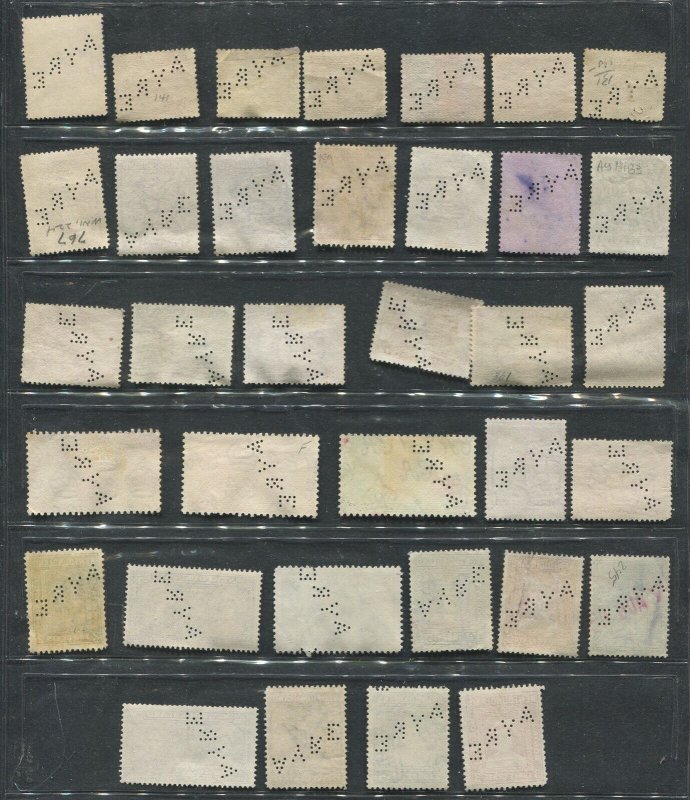 AYRE AYRE AYRE AYRE AYRE AYRE AYRE
141
131
AYRE AYRE AYRE AYRE AYRE AYRE AYRE
767
AYRE AYRE AYRE AYRE AYRE AYRE
AYRE AYRE AYRE AYRE AYRE
AYRE AYRE AYRE AYRE AYRE AYRE
245
AYRE AYRE AYRE AYRE